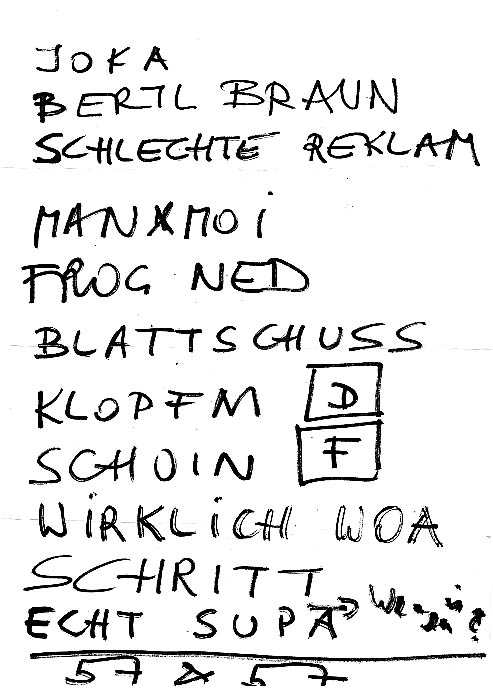 JOKA
BERTL BRAUN
SCHLECHTE REKLAM
MANXMOI
FROG NED
BLATTSCHUSS
KLOPFM D
SCHOIN F
WIRKLICH WOA
SCHRITT
ECHT SUPA
57 57